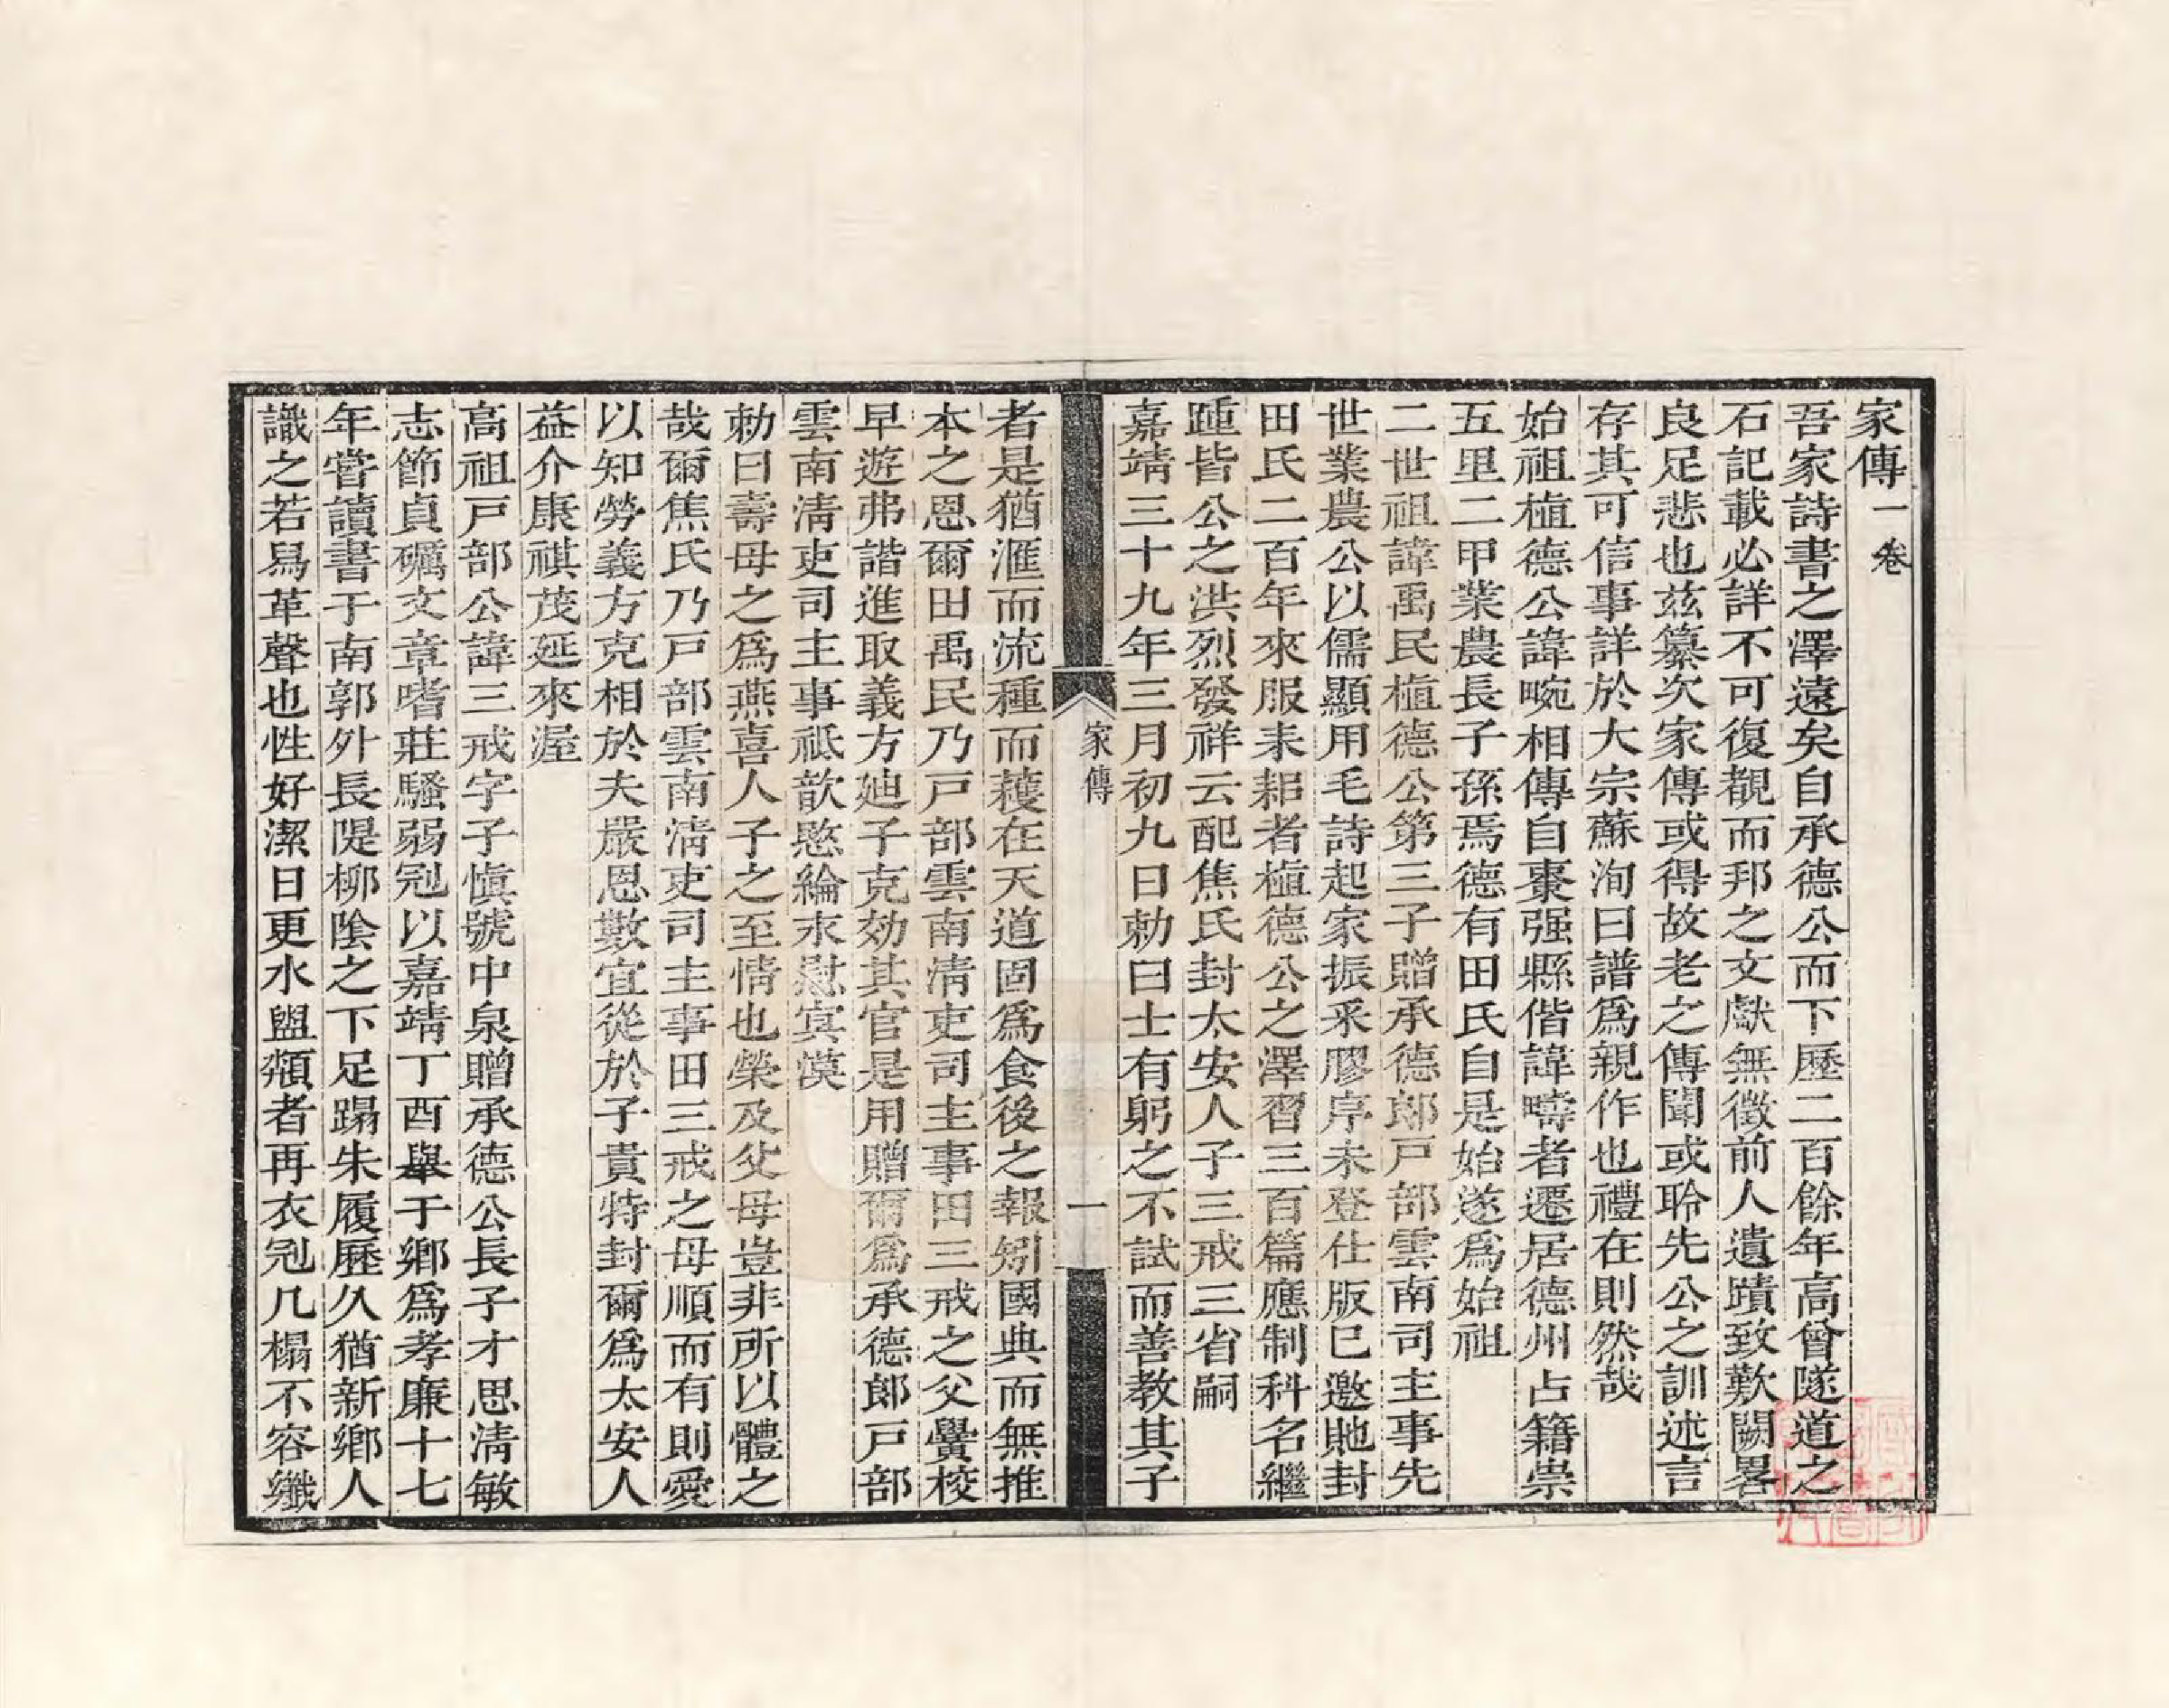 家傳一卷
吾家詩書之澤遠矣自承德公而下歷二百餘年高曾隧道之
石記載必詳不可復覩而邦之文獻無徵前人遺蹟致歎闕畧
良足悲也茲纂次家傳或得故老之傳聞或聆先公之訓述言
存其可信事詳於大宗蘇洵曰譜爲親作也禮在則然哉
始祖植德公諱畹相傳自棗强縣偕諱疇者遷居德州占籍祟
五里二甲業農長子孫焉德有田氏自是始遂爲始祖
二世祖諱禹民植德公第三子贈承德郎戸部雲南司主事先
世業農公以儒顯用毛詩起家振釆膠庠未登仕版巳邀貤封
田氏二百年來服耒耜者植德公之澤習三百篇應制科名繼
踵皆公之洪烈發祥云配焦氏封太安人子三戒三省嗣
嘉靖三十九年三月初九日勅曰士有躬之不試而善教其子
家傳
一
者是猶滙而流種而穫在天道固爲食後之報矧國典而無推
本之恩爾田禹民乃戸部雲南淸吏司主事田三戒之父黌校
早遊弗諧進取義方廸子克効其官是用贈爾爲承德郎戸部
雲南淸吏司主事祗歆愍綸永慰㝠漠
勅曰壽母之爲燕喜人子之至情也榮及父母豈非所以體之
哉爾焦氏乃戸部雲南淸吏司主事田三戒之母順而有則愛
以知勞義方克相於夫嚴恩數宜從於子貴特封爾爲太安人
益介康祺茂延來渥
高祖戸部公諱三戒字子愼號中泉贈承德公長子才思淸敏
志節貞礪文章嗜莊騷弱冠以嘉靖丁酉舉于鄕爲孝廉十七
年嘗讀書于南郭外長隄柳陰之下足蹋朱履歷久猶新鄕人
識之若舄革聲也性好潔日更水盥頮者再衣冠几榻不容纖